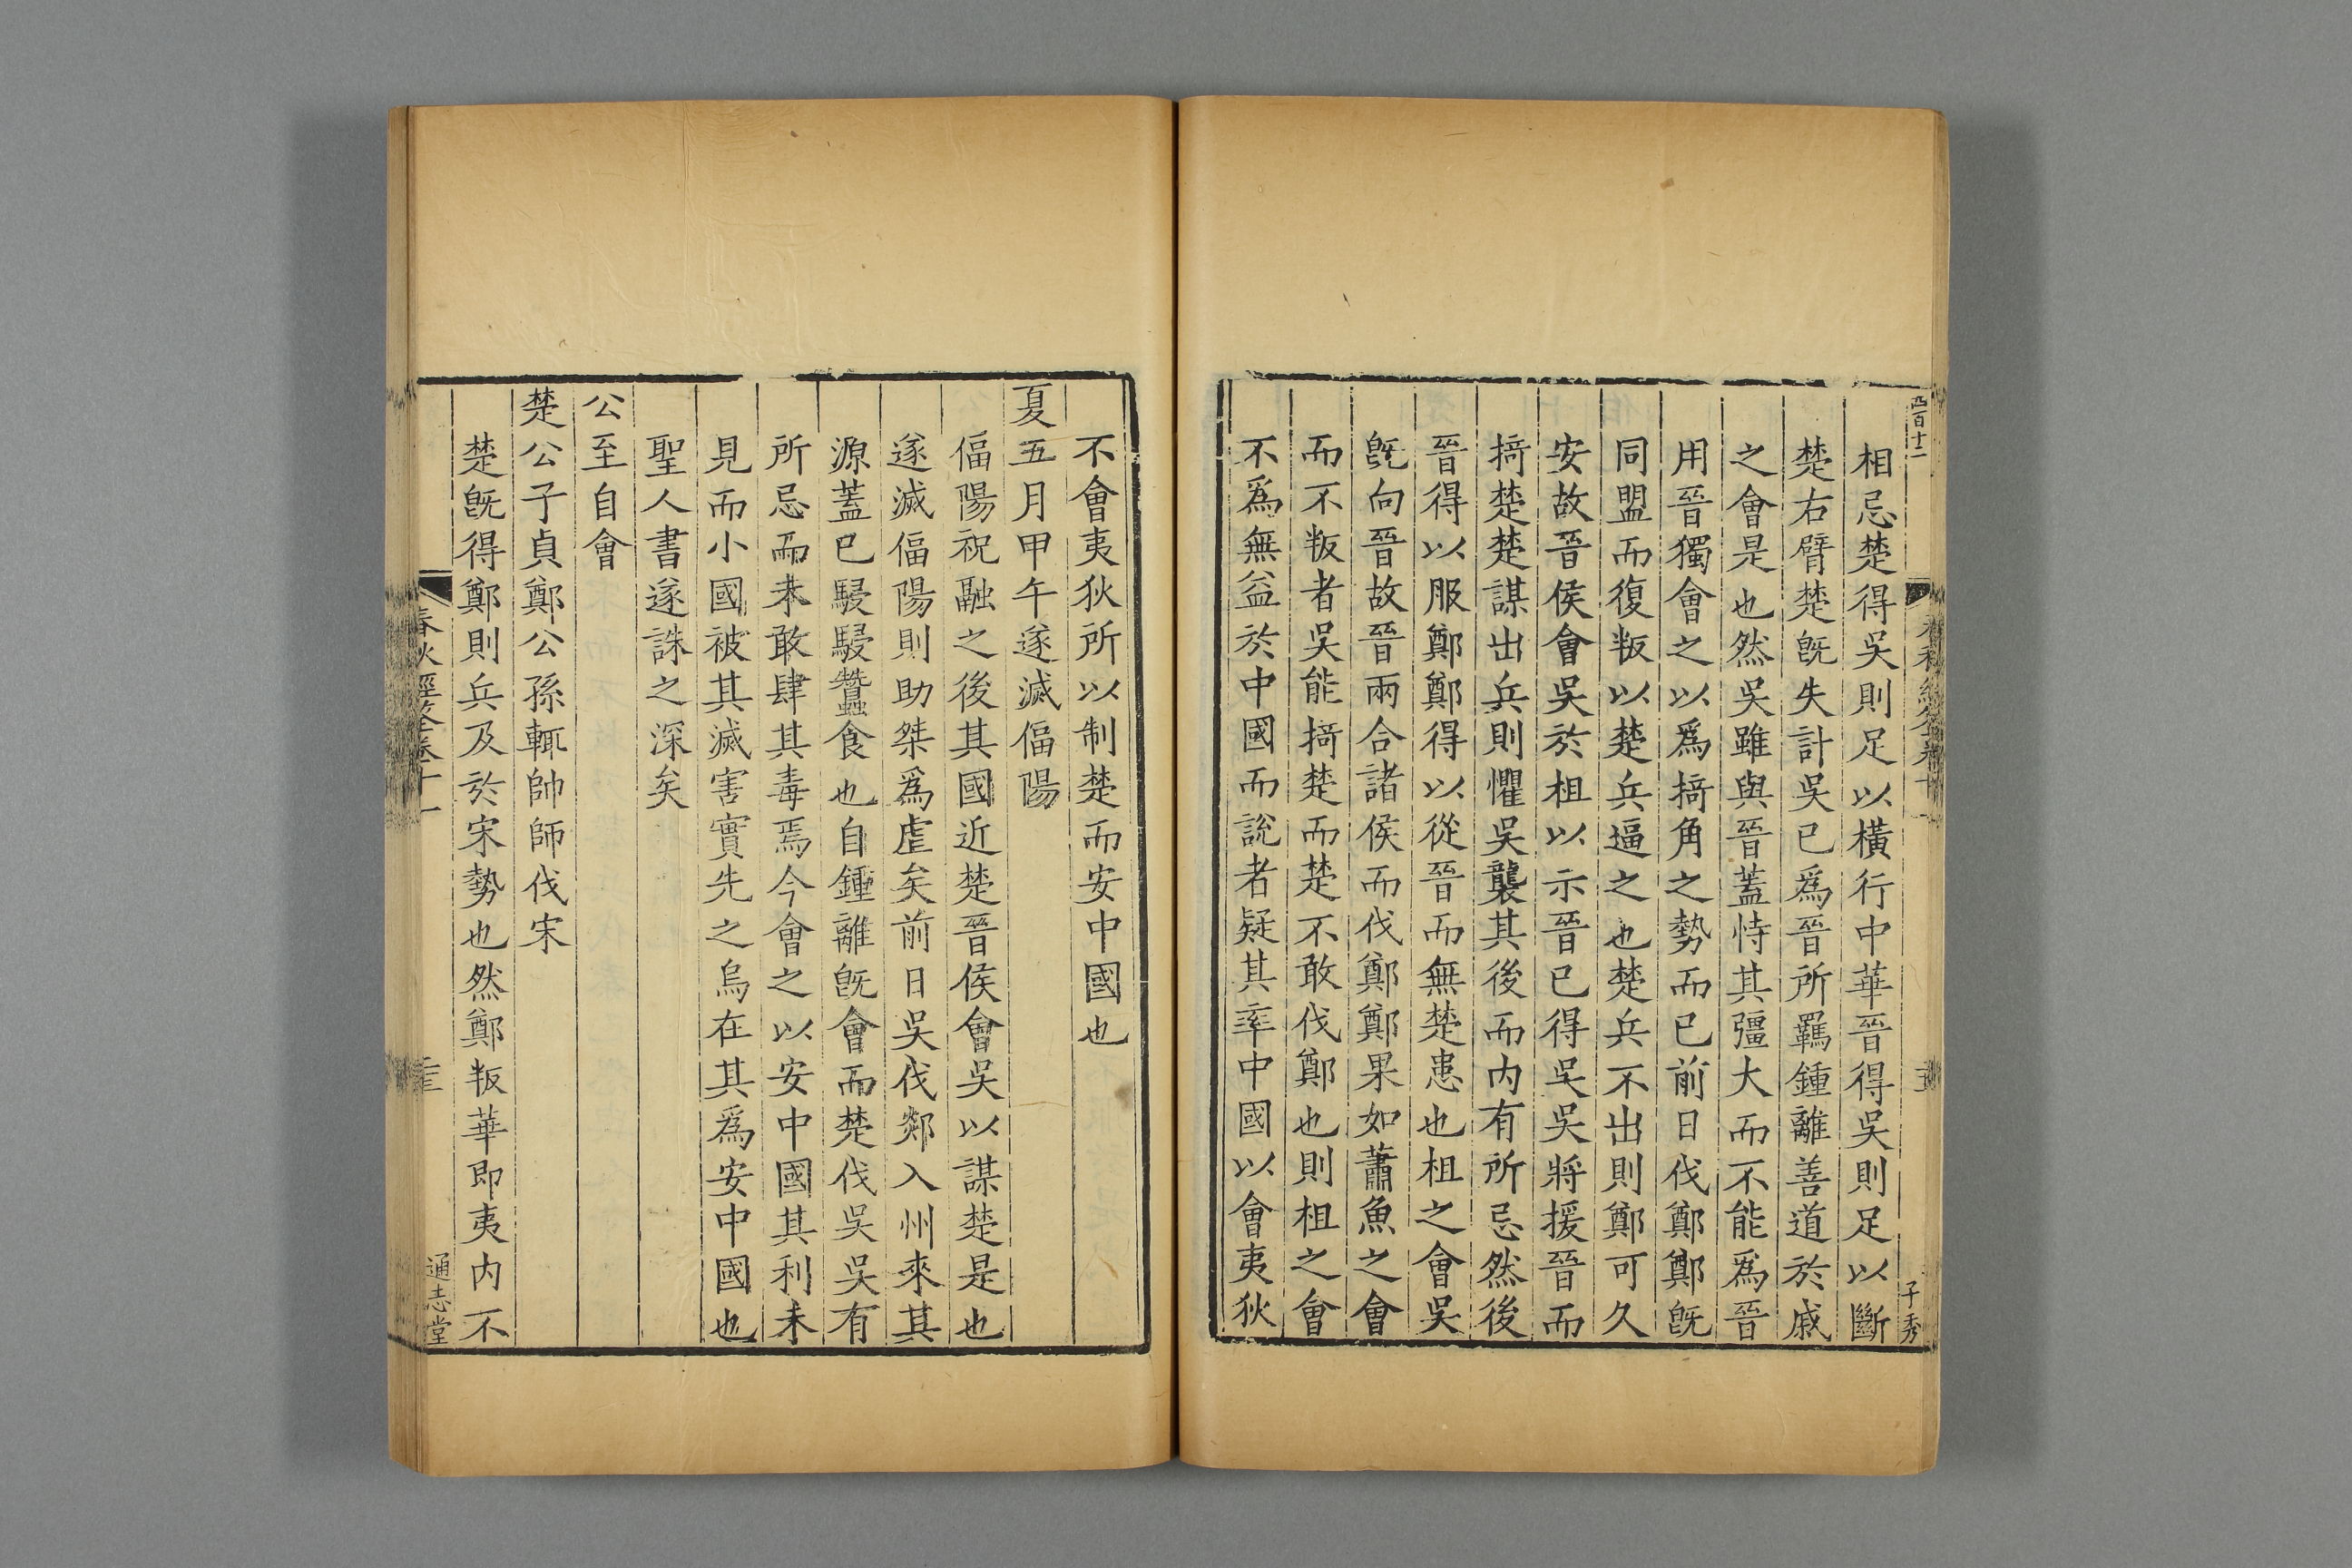 相忌楚得吳則足以橫行中華晉得吳則足以斷
楚右臂楚旣失計吳已爲晉所羈鍾離善道於戚
之會是也然吳雖與晉蓋恃其彊大而不能爲晉
用晉獨會之以爲掎角之勢而已前日伐鄭鄭旣
同盟而復叛以楚兵逼之也楚兵不出則鄭可久
安故晉侯會吳於柤以示晉已得吳吳將援晉而
掎楚楚謀出兵則懼吳襲其後而內有所忌然後
晉得以服鄭鄭得以從晉而無楚患也柤之會吳
旣向晉故晉兩合諸侯而伐鄭鄭果如蕭魚之會
而不叛者吳能掎楚而楚不敢伐鄭也則柤之會
不爲無益於中國而說者疑其率中國以會夷狄
子秀
不會夷狄所以制楚而安中國也
夏五月甲午遂滅偪陽
偪陽祝融之後其國近楚晉侯會吳以謀楚是也
遂滅偪陽則助桀爲虐矣前日吳伐郯入州來其
源蓋已駸駸蠶食也自鍾離旣會而楚伐吳吳有
所忌而未敢肆其毒焉今會之以安中國其利未
見而小國被其滅害實先之烏在其爲安中國也
聖人書遂誅之深矣
公至自會
楚公子貞鄭公孫輒帥師伐宋
楚旣得鄭則兵及於宋勢也然鄭叛華即夷內不
春秋經筌卷十一
通志堂